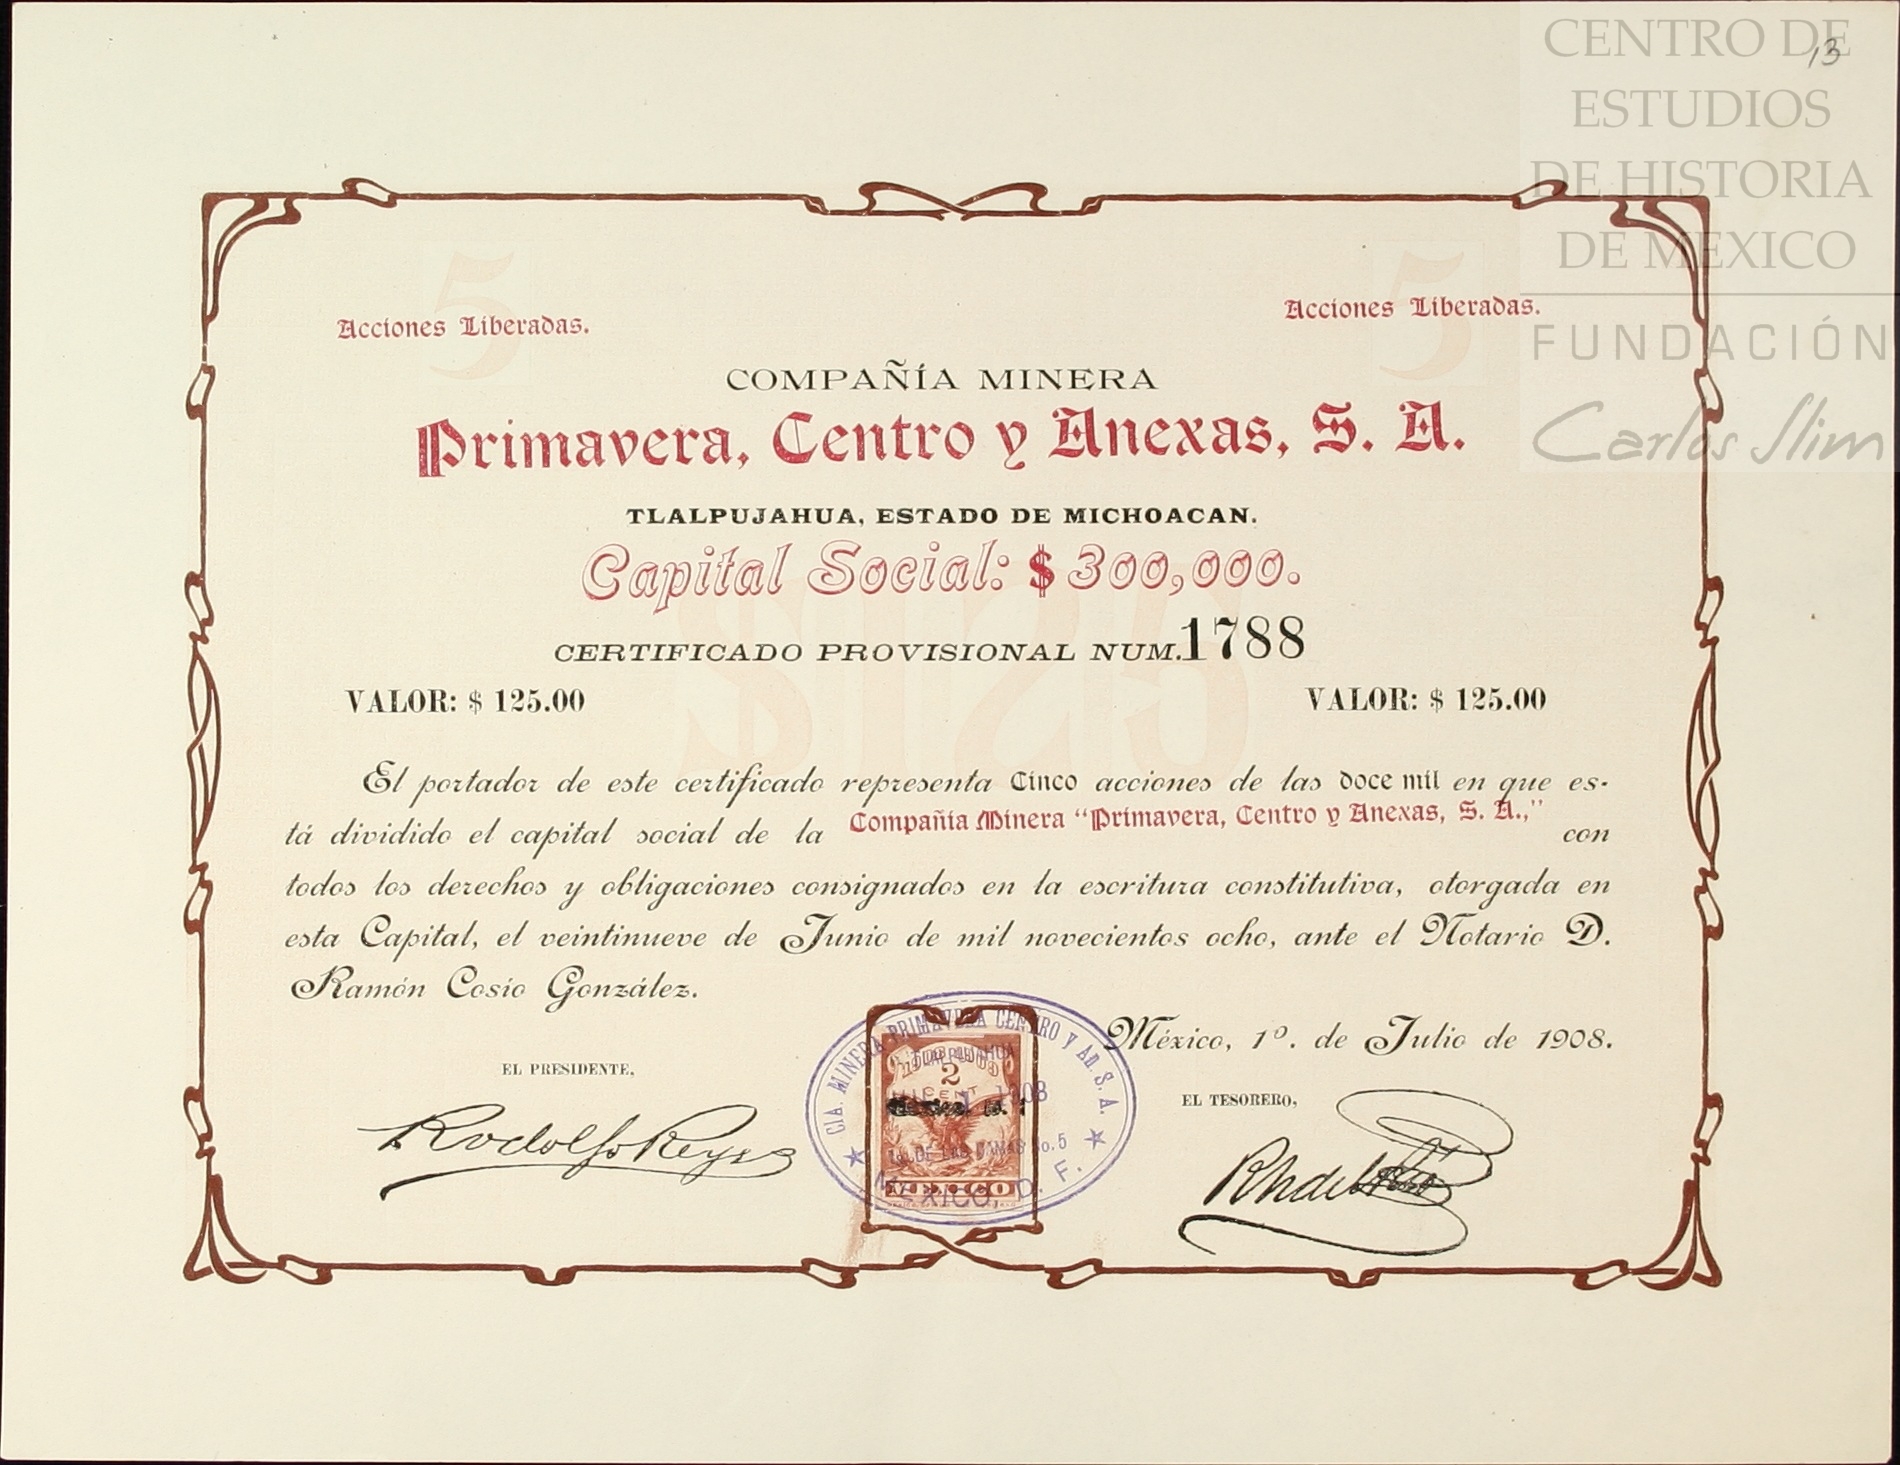 CENTRO DE
13
ESTUDIOS
DE HISTORIA
DE MEXICO
FUNDACIÓN
Carlos Slim
5
5
Acciones Liberadas.
Acciones Liberadas.
COMPAÑÍA MINERA
Primavera, Centro y Anexas, S. A.
TLALPUJAHUA, ESTADO DE MICHOACAN.
Capital Social: $ 300,000.
$125
CERTIFICADO PROVISIONAL NUM. 1788
VALOR: $ 125.00
VALOR: $ 125.00
El portador de este certificado representa Cinco acciones de las doce mil en que es-
tá dividido el capital social de la Compañia Minera "Primavera, Centro y Anexas, S. A.," con
todos los derechos y obligaciones consignados en la escritura constitutiva, otorgada en
esta Capital, el veintinueve de Junio de mil novecientos ocho, ante el Notario D.
Ramón Cosío González.
México, 1º. de Julio de 1908.
EL PRESIDENTE,
Rodolfo Reyes
EL TESORERO,
CIA. MINERA PRIMAVERA CENTRO Y AN. S. A.
TLALPUJAHUA
2
1908
DE LAS DAMAS No. 5
MEXICO, D. F.